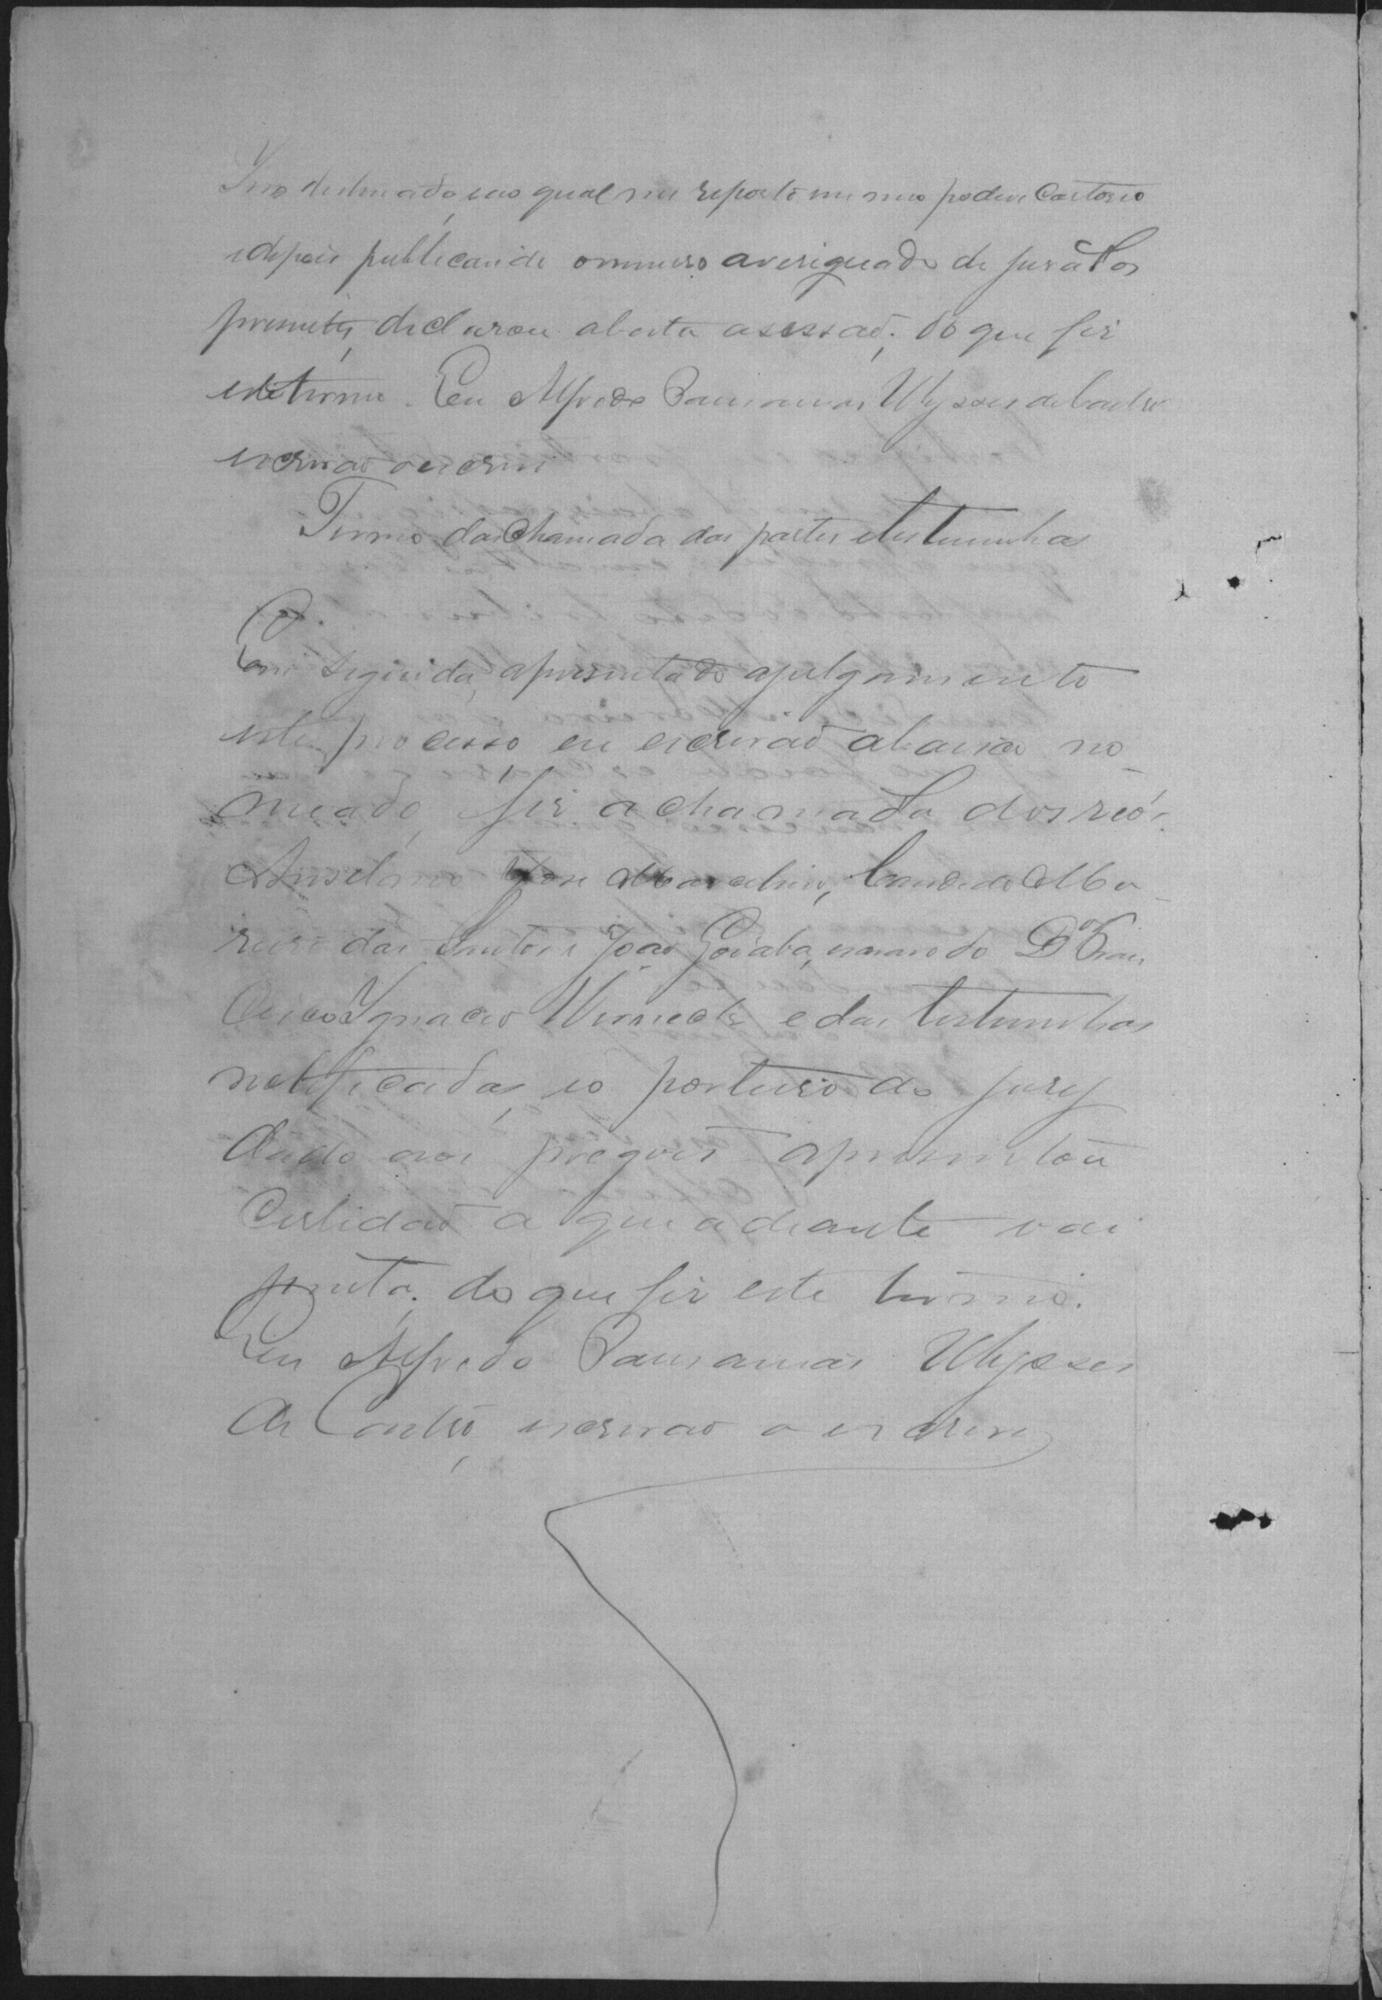 livro destinado, ao qual me reporto em meu poder e cartorio
e depois publicando o numero averiguado de jurados
presentes, declarou aberta a sessaõ; do que fiz
este termo. Eu Alfredo Pausanias Ulysses de Castro
escrivaõ o escrevi
Termo da chamada das partes e testemunhas
Em seguida, apresentado a julgamento
este processo eu escrivaõ abaixo no-
meado, fiz a chamada dos réos
Anselmo José Marcelino, Candido Mo-
reira dos Santos e João Goiaba, Dor Fran
cisco Ignacio Werneck e das testemunhas
notificadas, e o porteiro do jury
dando os pregões apresentou
certidaõ a que adiante vai
junta; do que fiz este termo.
Eu Alfredo Pausanias Ulysses
de Castro, escrivaõ o escrevi